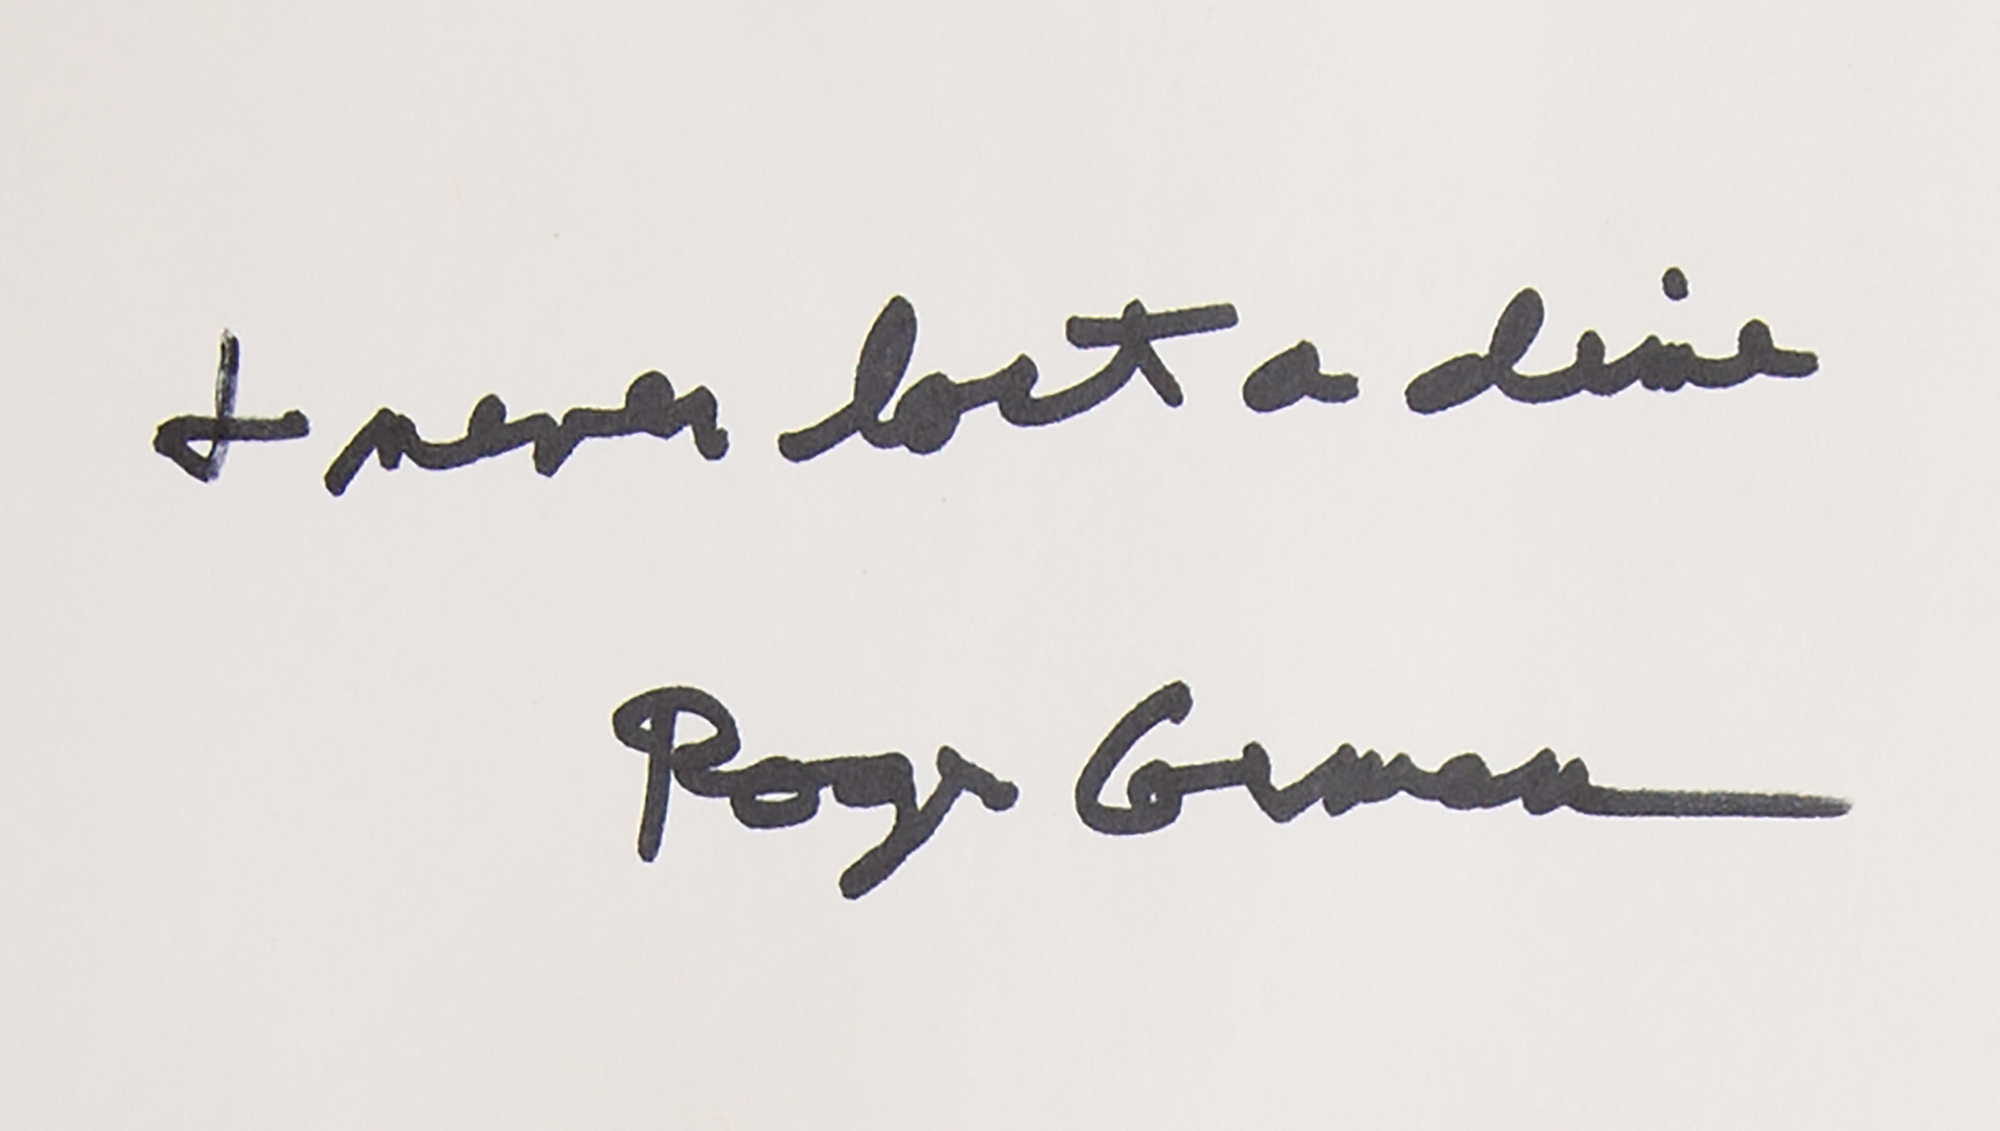 + never lost a dime
Roger Corman